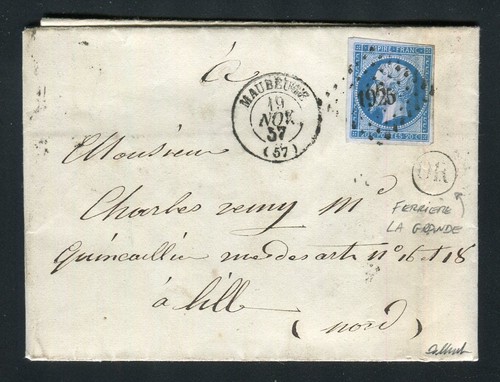 EMPIRE FRANC
1925
POSTES 20 C
MAUBEUGE
19
NOV.
57
(57)
à
OR
Monsieur
FERRIERE
LA GRANDE
Charles remy Md
Quincaillier rue des arts n° 16 et 18
à lill
(nord)